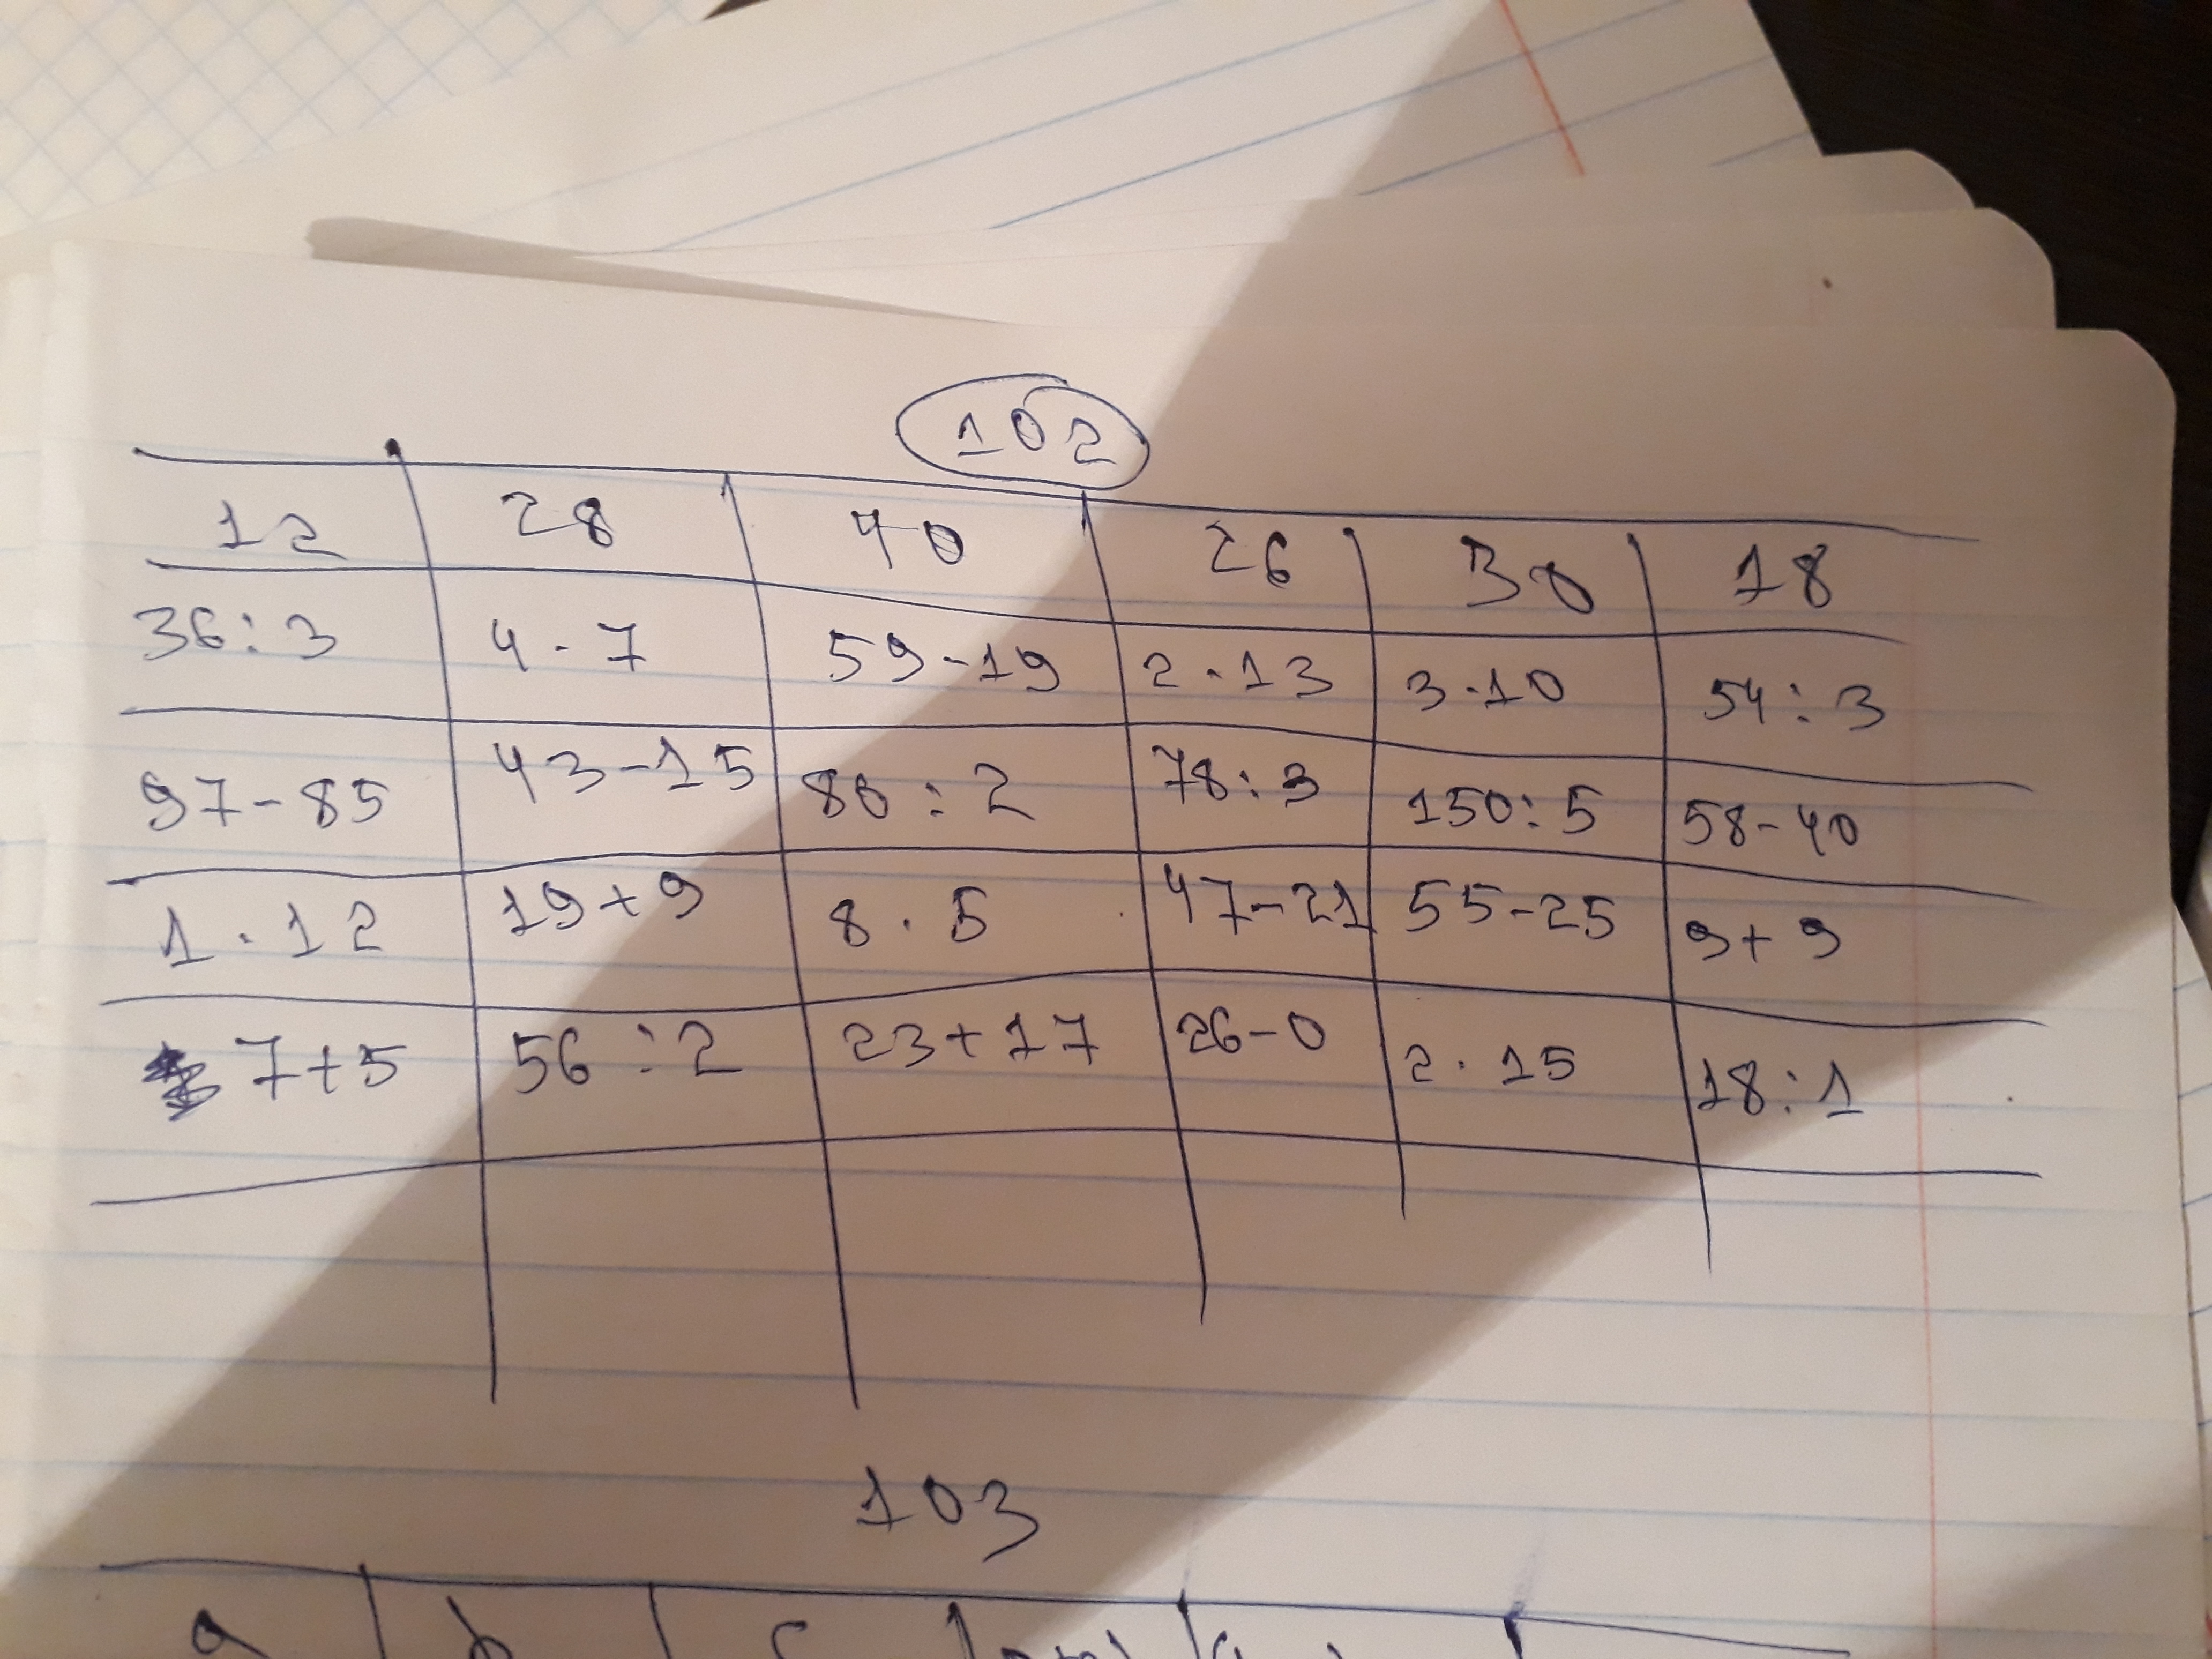 102
12 28 40 26 30 18
36:3 4·7 59-19 2·13 3·10 54:3
97-85 43-15 80:2 78:3 150:5 58-40
1·12 19+9 8·5 47-21 55-25 9+9
7+5 56:2 23+17 26-0 2·15 18:1
103
a b c